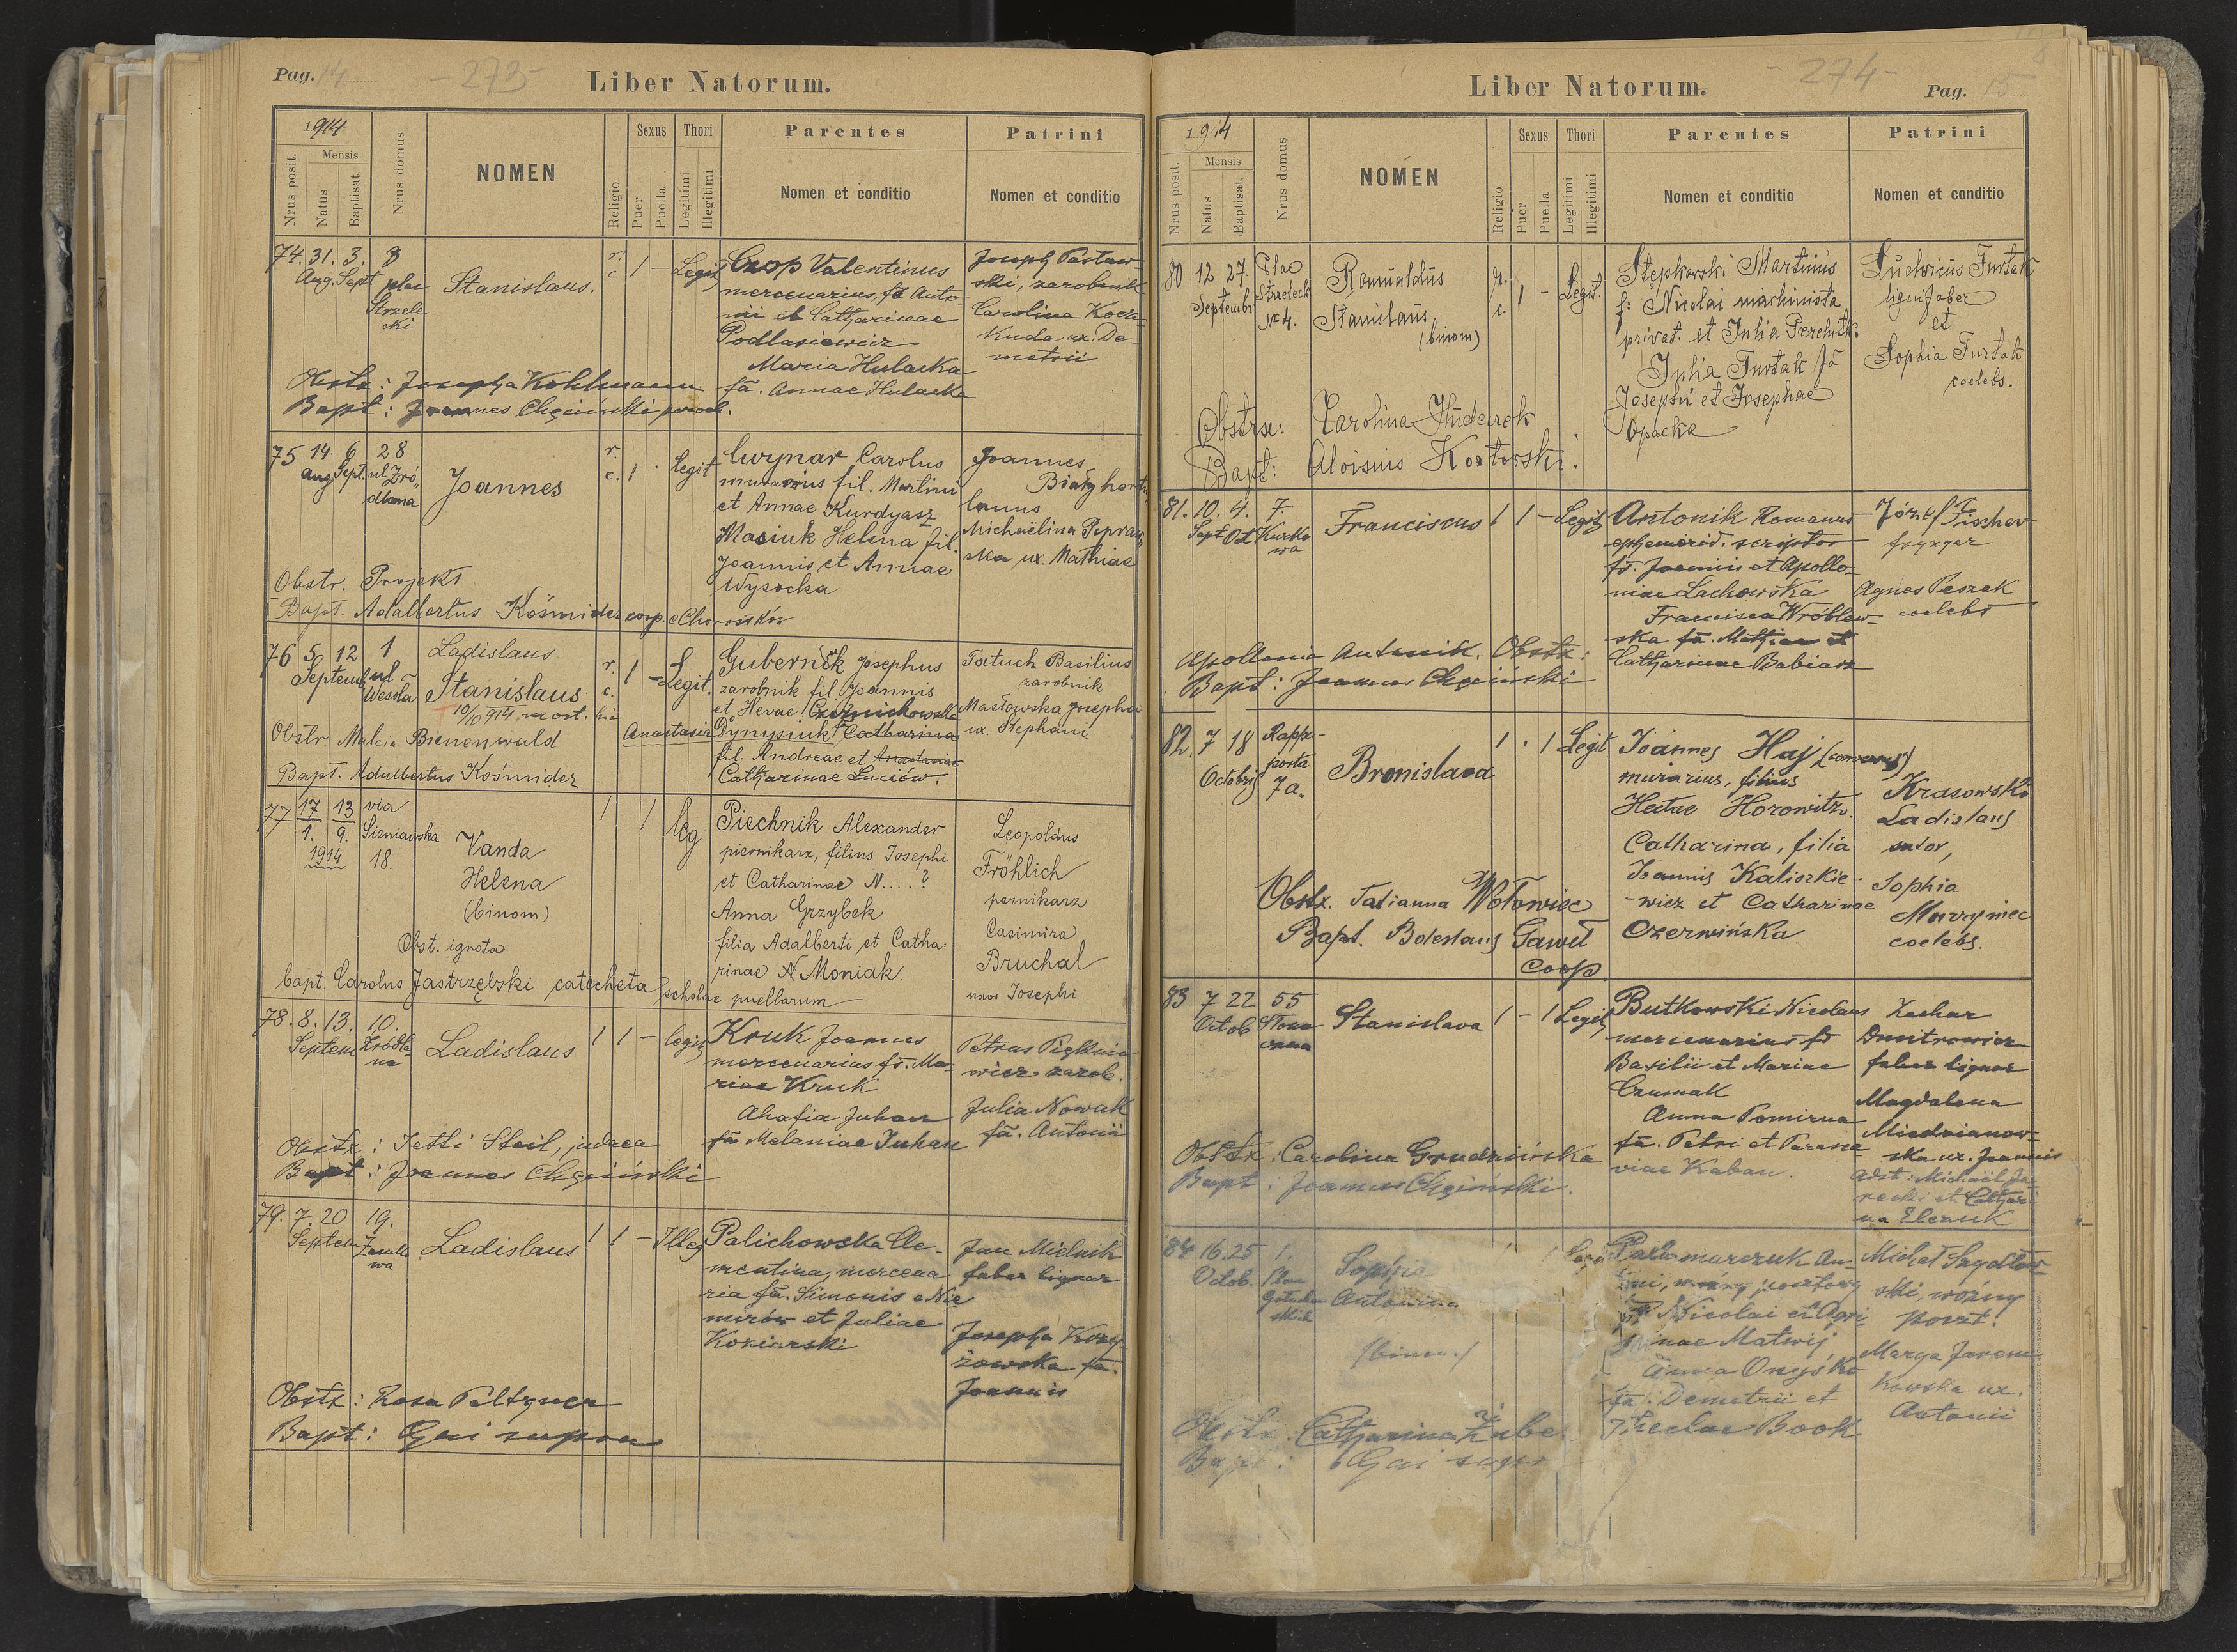 Pag. 14
- 273 -
Liber Natorum.
1914
Nrus posit.
Mensis
Natus
Baptisat.
Nrus domus
NOMEN
Religio
Sexus
Puer
Puella
Thori
Legitimi
Illegitimi
Parentes
Nomen et conditio
Patrini
Nomen et conditio
74. 31. 3. 3
Aug. Sept plac
Strzele
cki
Stanislaus.
r.
c 1 - Legit
Czop Valentinus
mercenarius, fs Anto
nii et Catharinae
Podlasiewicz
Maria Hulacka
fa. Annae Hulacka
Joseph Pastaw-
ski, zarobnik
Carolina Kocz-
kuda ux. De-
metrii
Obstx: Josepha Kohlmann
Bapt: Joannes Chęciński paroch.
75 14 6 28
Aug Sept. ul Zró-
dlana
Joannes
r.
c. 1 . Legit
Cwynar Carolus
murarius fil. Martini
et Annae Kurdyasz
Masiuk Helena fil.
Joannis et Annae
Wysocka
Joannes
Biały hortu
lanus
Michaëlina
ska ux. Mathiae
Obstr. Projekt
Bapt. Adalbertus Kośmider coop. e Chorostków
76 5 12 1
Septemb ul
Wesoła
Ladislaus
Stanislaus
10/10 914 mort. hic
r.
c. 1 - Legit.
Gubernik Josephus
zarobnik fil. Joannis
et Hevae Czernichowska
Anastasia Dynysiuk Catharina
fil. Andreae et Anastasiae
Catharinae Luciów.
Tatuch Basilius
zarobnik
Masłowska Josepha
ux. Stephani.
Obstr. Malcia Bienenwald
Bapt. Adalbertus Kośmider
77 17 13 via
1. 9. Sieniawska
1914 18.
Vanda
Helena
(binom)
1 1 leg
Piechnik Alexander
piernikarz, filius Josephi
et Catharinae N....?
Anna Grzybek
filia Adalberti et Catha-
rinae N Moniak.
Leopoldus
Fröhlich
pernikarz
Casimira
Bruchal
uxor Josephi
Obst. ignota
bapt. Carolus Jastrzębski catecheta scholae puellarum
78. 8. 13. 10.
Septem Źródla-
na
Ladislaus
1 1 - legit
Kruk Joannes
mercenarius fs. Ma-
riae Kruk
Ahafia Juhan
fa Melaniae Juhan
Petrus Pięknie
wicz zarob.
Julia Nowak
fa. Antonii
Obstx: Jetti Steil, judaea
Bapt: Joannes Chęciński
79. 7. 20 19.
Septem
wa
Ladislaus
1 1 - Illeg
Palichowska Cle-
mentina, mercena
ria fa. Simonis e Nie
mirów et Juliae
Koziarski
Jan Mielnik
faber lignar
Josepha Krzy-
żowska fa.
Joannis
Obstx: Rosa Peltzner
Bapt: Qui supra
Liber Natorum.
- 274 -
Pag. 15
1914
Nrus posit.
Mensis
Natus
Baptisat.
Nrus domus
NOMEN
Religio
Sexus
Puer
Puella
Thori
Legitimi
Illegitimi
Parentes
Nomen et conditio
Patrini
Nomen et conditio
80 12 27. Plac
Septembr Strzeleck
Nr 4.
Romualdus
Stanislaus
(binom)
r.
c. 1 - Legit.
Stępkowski Martinus
f: Nicolai machinista
privat. et Julia
Julia Furtak fa
Josephi et Josephae
Opacka
Ludwius Furtak
ligni faber
et
Sophia Furtak
coelebs.
Obstrx: Carolina Huderek
Bapt: Aloisius
81. 10. 4. 7.
Sept Oct Kurko
wa
Franciscus
1 1 - Legit
Antonik Romanus
ephemerid. scriptor
fs. Joannis et Apollo-
niae Lachowska
Francisca Wróblew-
ska fa. Mathiae et
Catharinae Babiarz
Józef Fischer
fryzyer
Agnes Peszek
coelebs
Apollonia Antonik. Obstx:
Bapt: Joannes Chęciński
82. 7 18 Rappa-
Octobris porta
7a.
Bronislava
1 . 1 Legit
Joannes Haj (conversus)
murarius, filius
Horowitz.
Catharina, filia
Joannis Kaliszkie-
-wicz et Catharinae
Czerwińska
Krasowski
Ladislaus
sutor,
Sophia
coelebs.
Obstx. Tatianna Wołowiec
Bapt. Boleslaus Gaweł
coop
83 7 22 55
Octob Słone
czna
Stanislava
1 - 1 Legit
Butkowski Nicolaus
mercenarius fs
Basilii et Mariae
Czumak
Anna Pomirna
fa. Petri et Parasce
viae Kaban.
Zachar
Dmitrowicz
faber lignar
Magdalena
Miedzianow-
ska ux. Joannis
Adst: Michaël Ja-
recki et Cathari
na Elczuk
Obstx: Carolina Grudzińska
Bapt: Joannes Chęciński.
84 16. 25 1.
Octob. Plac
Gołucho
skich
Sophia
Antonina
(binom.)
1 1 Legit
Palamarczuk An-
toni, woźny pocztowy
fs Nicolai et Agri-
pinae Matwij
Anna Onyśko
fa: Demetrii et
Theclae Book
Michał
ski, woźny
poczt.
Marya Jarem
kowska ux.
Antonii
Obstx: Catharina
Bapt: Qui supr